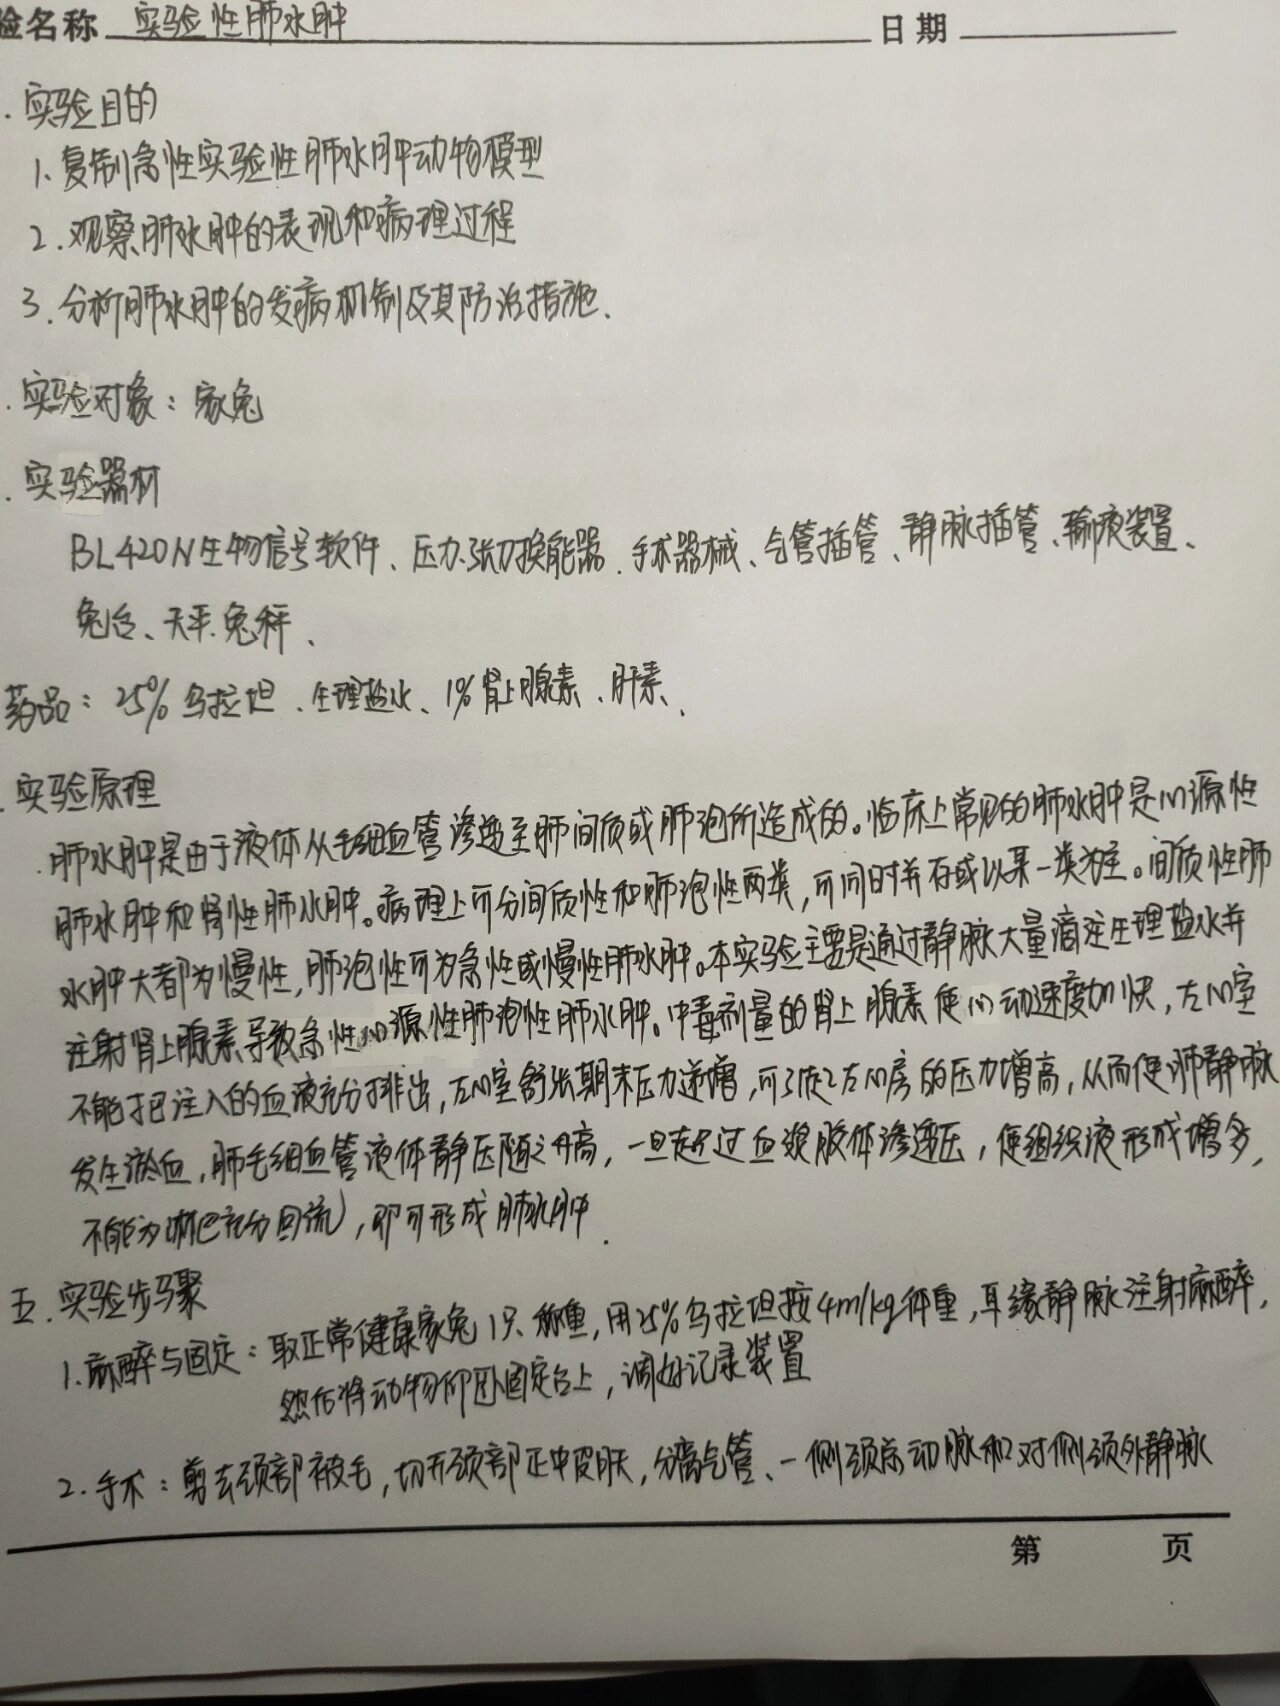 验名称 实验性肺水肿 日期
. 实验目的
1. 复制急性实验性肺水肿动物模型
2. 观察肺水肿的表现和病理过程
3. 分析肺水肿的发病机制及其防治措施.
. 实验对象：家兔
. 实验器材
BL420N生物信号软件、压力.张力换能器.手术器械、气管插管、静脉插管、输液装置、
兔台、天平.兔秤.
药品：25%乌拉坦.生理盐水、1%肾上腺素、肝素、
. 实验原理
肺水肿是由于液体从毛细血管渗透至肺间质或肺泡所造成的。临床上常见的肺水肿是心源性
肺水肿和肾性肺水肿。病理上可分间质性和肺泡性两类，可同时并存或以某一类为主。间质性肺
水肿大都为慢性，肺泡性可为急性或慢性肺水肿。本实验主要是通过静脉大量滴注生理盐水并
注射肾上腺素导致急性心源性肺泡性肺水肿。中毒剂量的肾上腺素使心动速度加快，左心室
不能把注入的血液充分排出，左心室舒张期末压力递增，可引起左心房的压力增高，从而使肺静脉
发生淤血，肺毛细血管液体静压随之升高，一旦超过血浆胶体渗透压，使组织液形成增多，
不能为淋巴充分回流，即可形成肺水肿.
五.实验步骤
1.麻醉与固定：取正常健康家兔1只、称重，用25%乌拉坦按4ml/kg体重，耳缘静脉注射麻醉，
然后将动物仰卧固定台上，调好记录装置
2.手术：剪去颈部被毛，切开颈部正中皮肤，分离气管、一侧颈总动脉和对侧颈外静脉
第 页